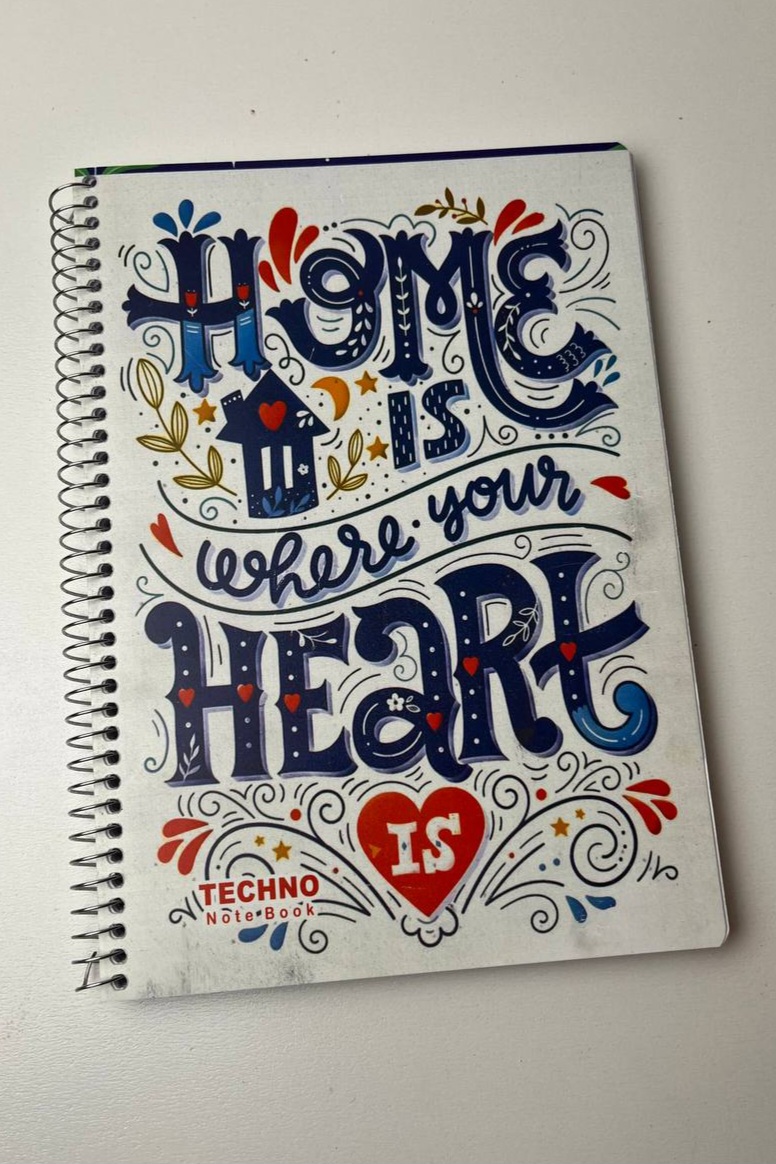 HOME
IS
where your
HEART
IS
TECHNO
Note Book